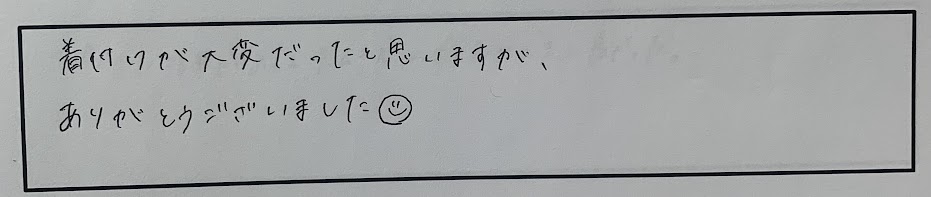 着付けが大変だったと思いますが、
ありがとうございました☺